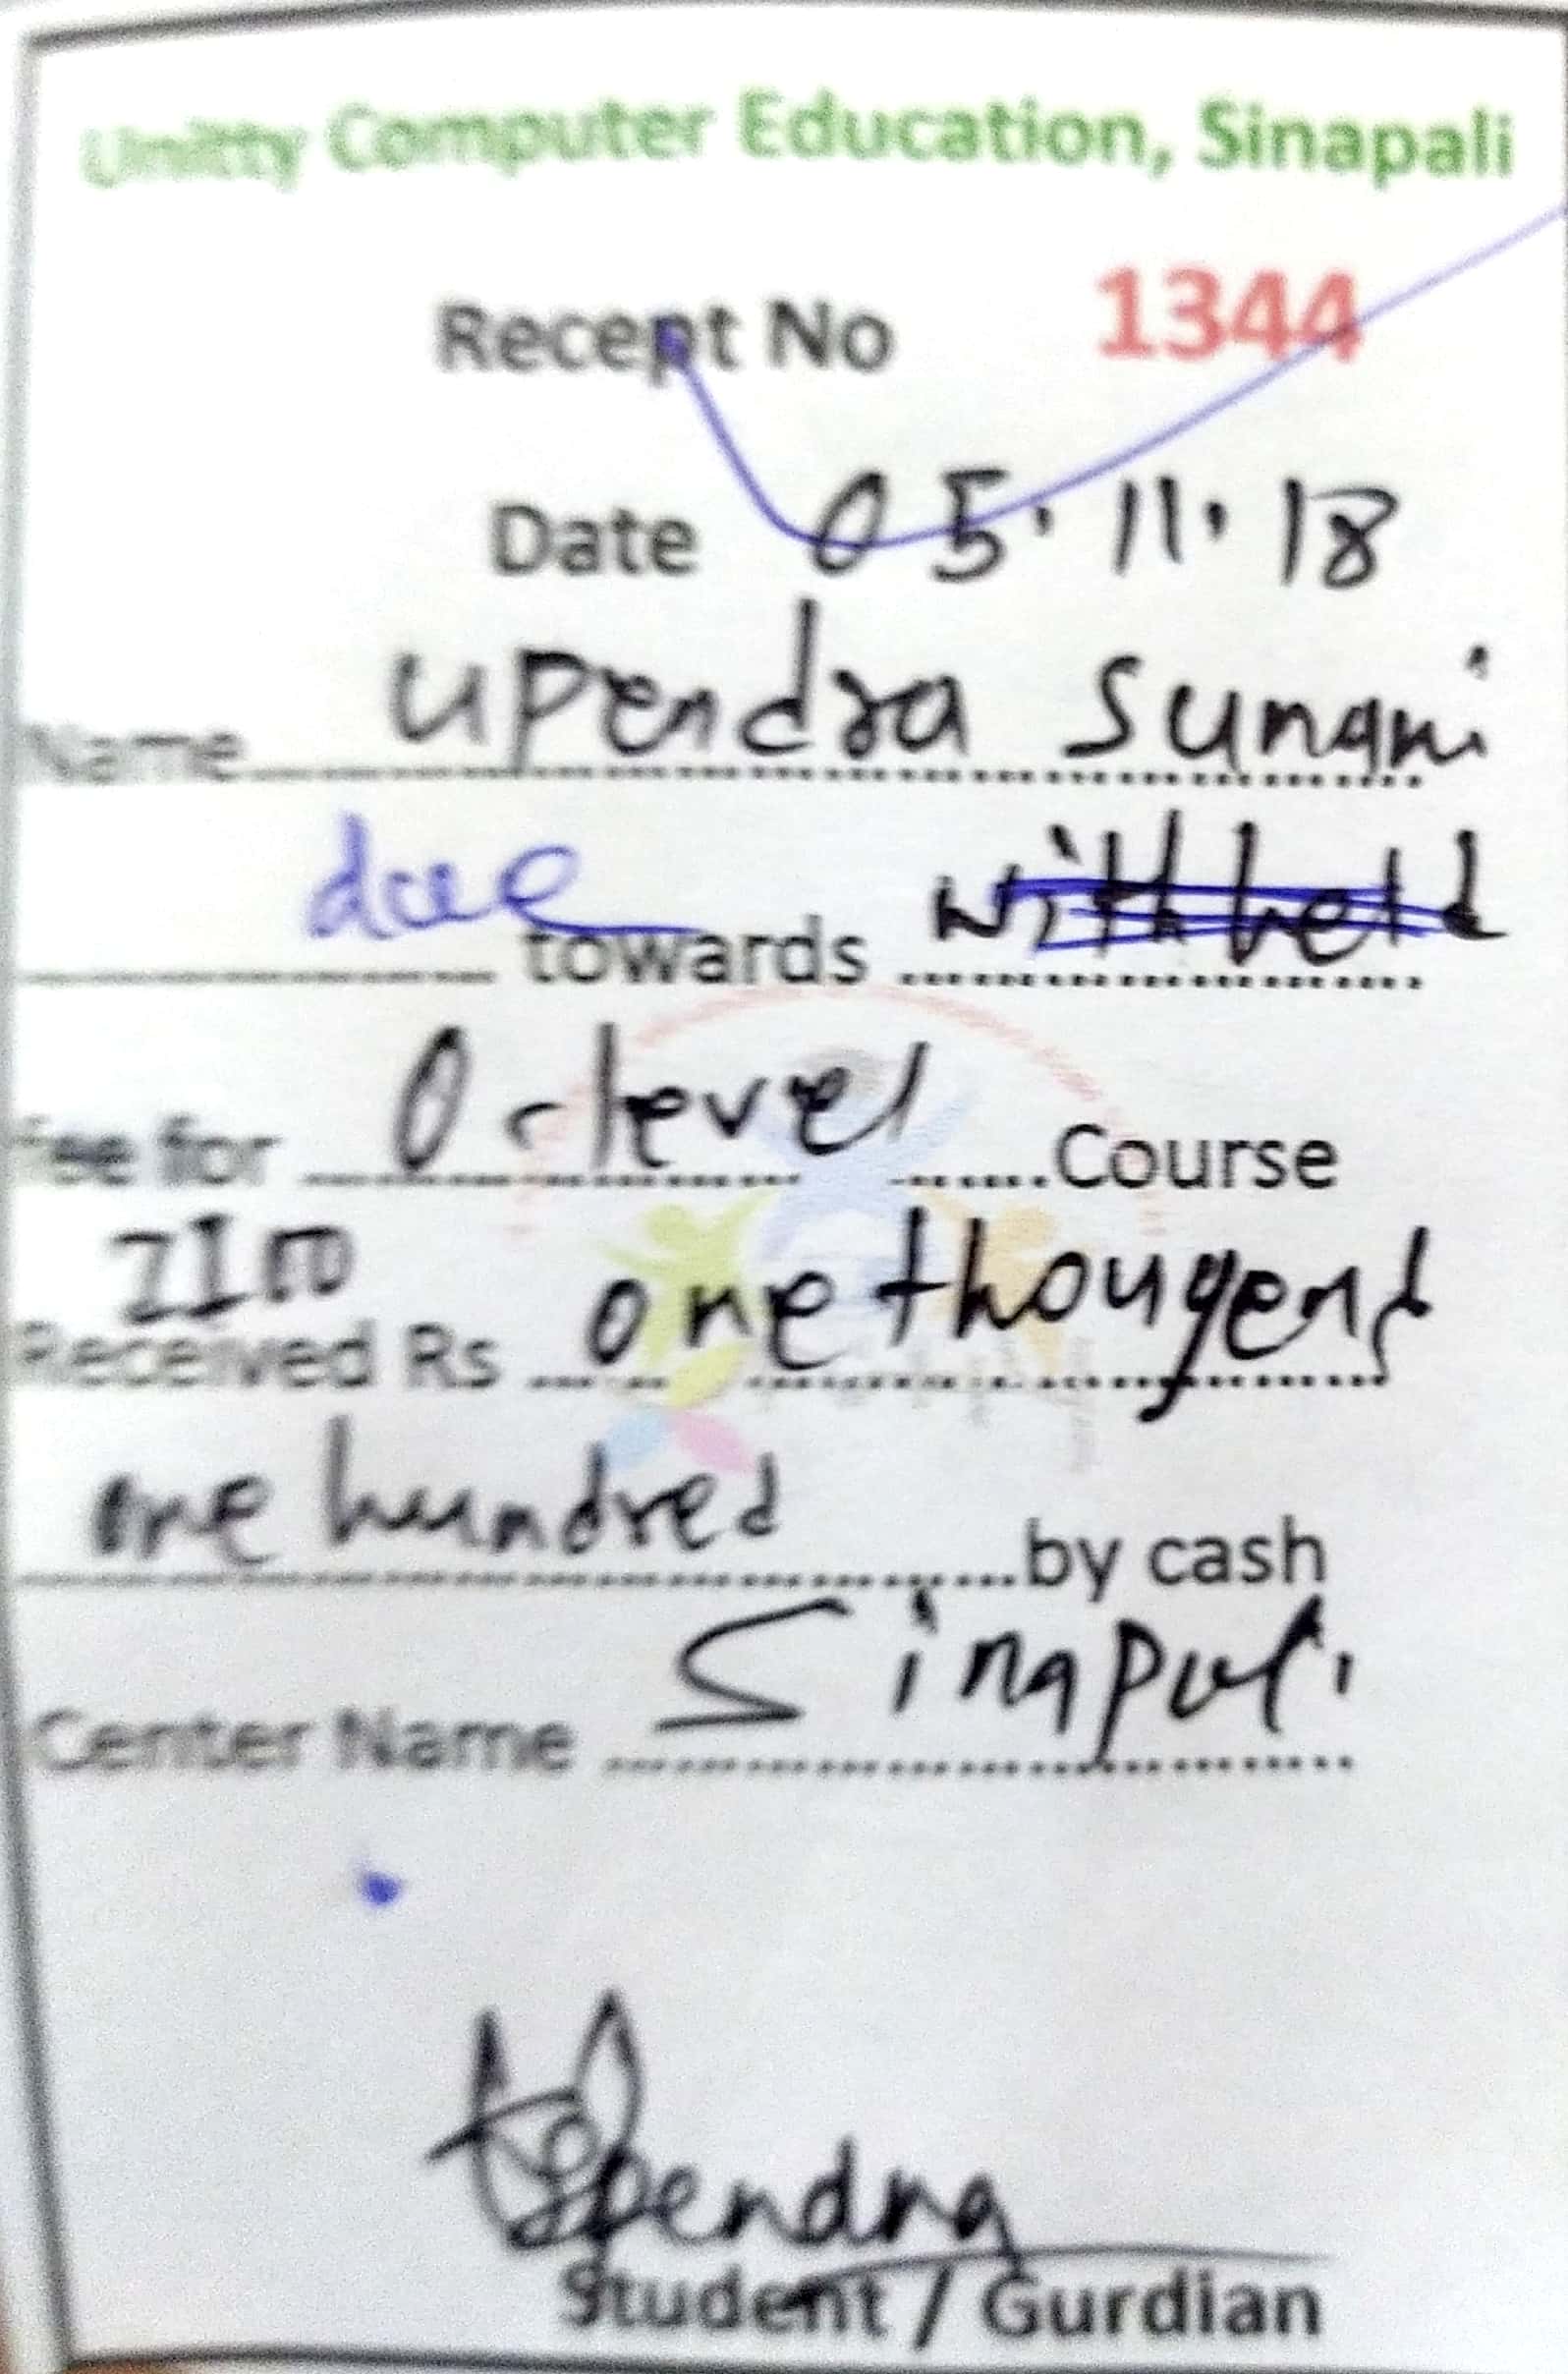 Unitty Computer Education, Sinapali
Recept No 1344
Date 05.11.18
Name upendra Sunani
due towards withheld
Fee for O-level Course
Received Rs one thougend
one hundred by cash
Center Name Sinapali
Upendra
Student / Gurdian